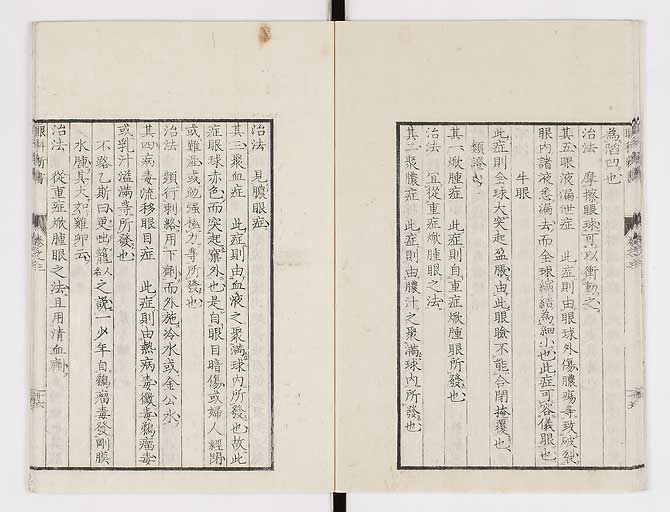 為陷凹也
治法　摩擦眼球可以衝動之
其五眼液漏泄症　此症則由眼球外傷膿瘍等致破裂
眼内諸液悉漏去而全球縮結為細小也此症可容儀眼也
牛眼
此症則全球大突起盈臌由此眼瞼不能合閉掩覆也
類證
其一焮腫症　此症則自重症焮腫眼所發也
治法　宜從重症焮腫眼之法
其二聚膿症　此症則由膿汁之聚滿球内所發也
治法　見膿眼症
其三聚血症　此症則由血液之聚滿球内所發也故此
症眼球赤色而突起窠外也是自眼目暗傷或婦人經閉
或難産或勉强極力等所發也
治法　頻行刺絡用下劑而外施冷水或金公水
其四病毒流移眼目症　此症則由熱病毒黴毒鷄瘤毒
或乳汁溢滿等所發也
不路乙斯曰更咄籠人名之說一少年自鷄瘤毒發剛膜
水腫其大如雞卵云
治法　從重症焮腫眼之法且用清血劑
眼科新書
卷之三